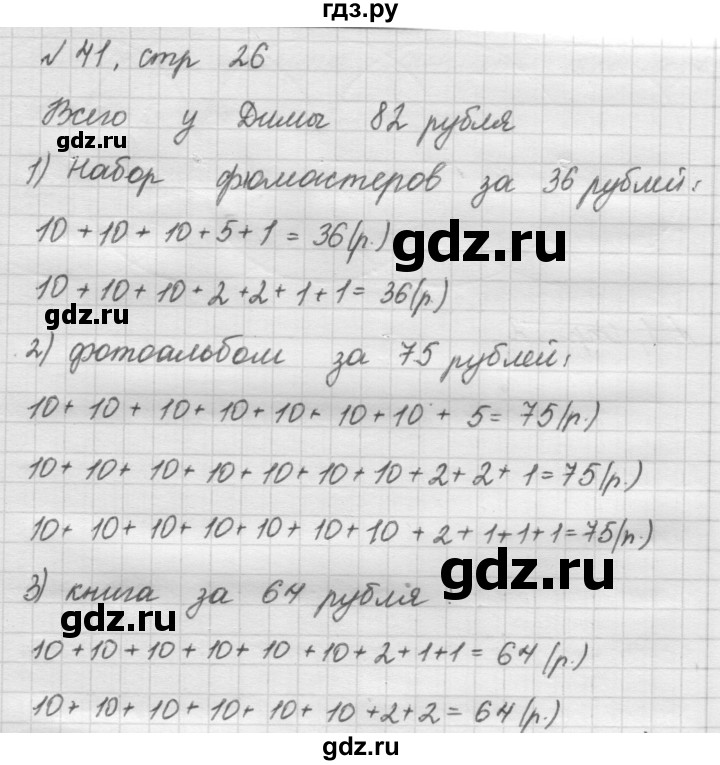 гдз.ру
№ 41, стр 26
Всего у Димы 82 рубля
gdz.ru
1) Набор фломастеров за 36 рублей:
10 + 10 + 10 + 5 + 1 = 36 (р.)
gdz.ru
10 + 10 + 10 + 2 + 2 + 1 + 1 = 36 (р.)
gdz.ru
2) фотоальбом за 75 рублей:
10 + 10 + 10 + 10 + 10 + 10 + 10 + 5 = 75 (р.)
10 + 10 + 10 + 10 + 10 + 10 + 10 + 2 + 2 + 1 = 75 (р.)
10 + 10 + 10 + 10 + 10 + 10 + 10 + 2 + 1 + 1 + 1 = 75 (р.)
gdz.ru
3) книга за 64 рубля
gdz.ru
10 + 10 + 10 + 10 + 10 + 10 + 2 + 1 + 1 = 64 (р.)
10 + 10 + 10 + 10 + 10 + 10 + 2 + 2 = 64 (р.)
gdz.ru